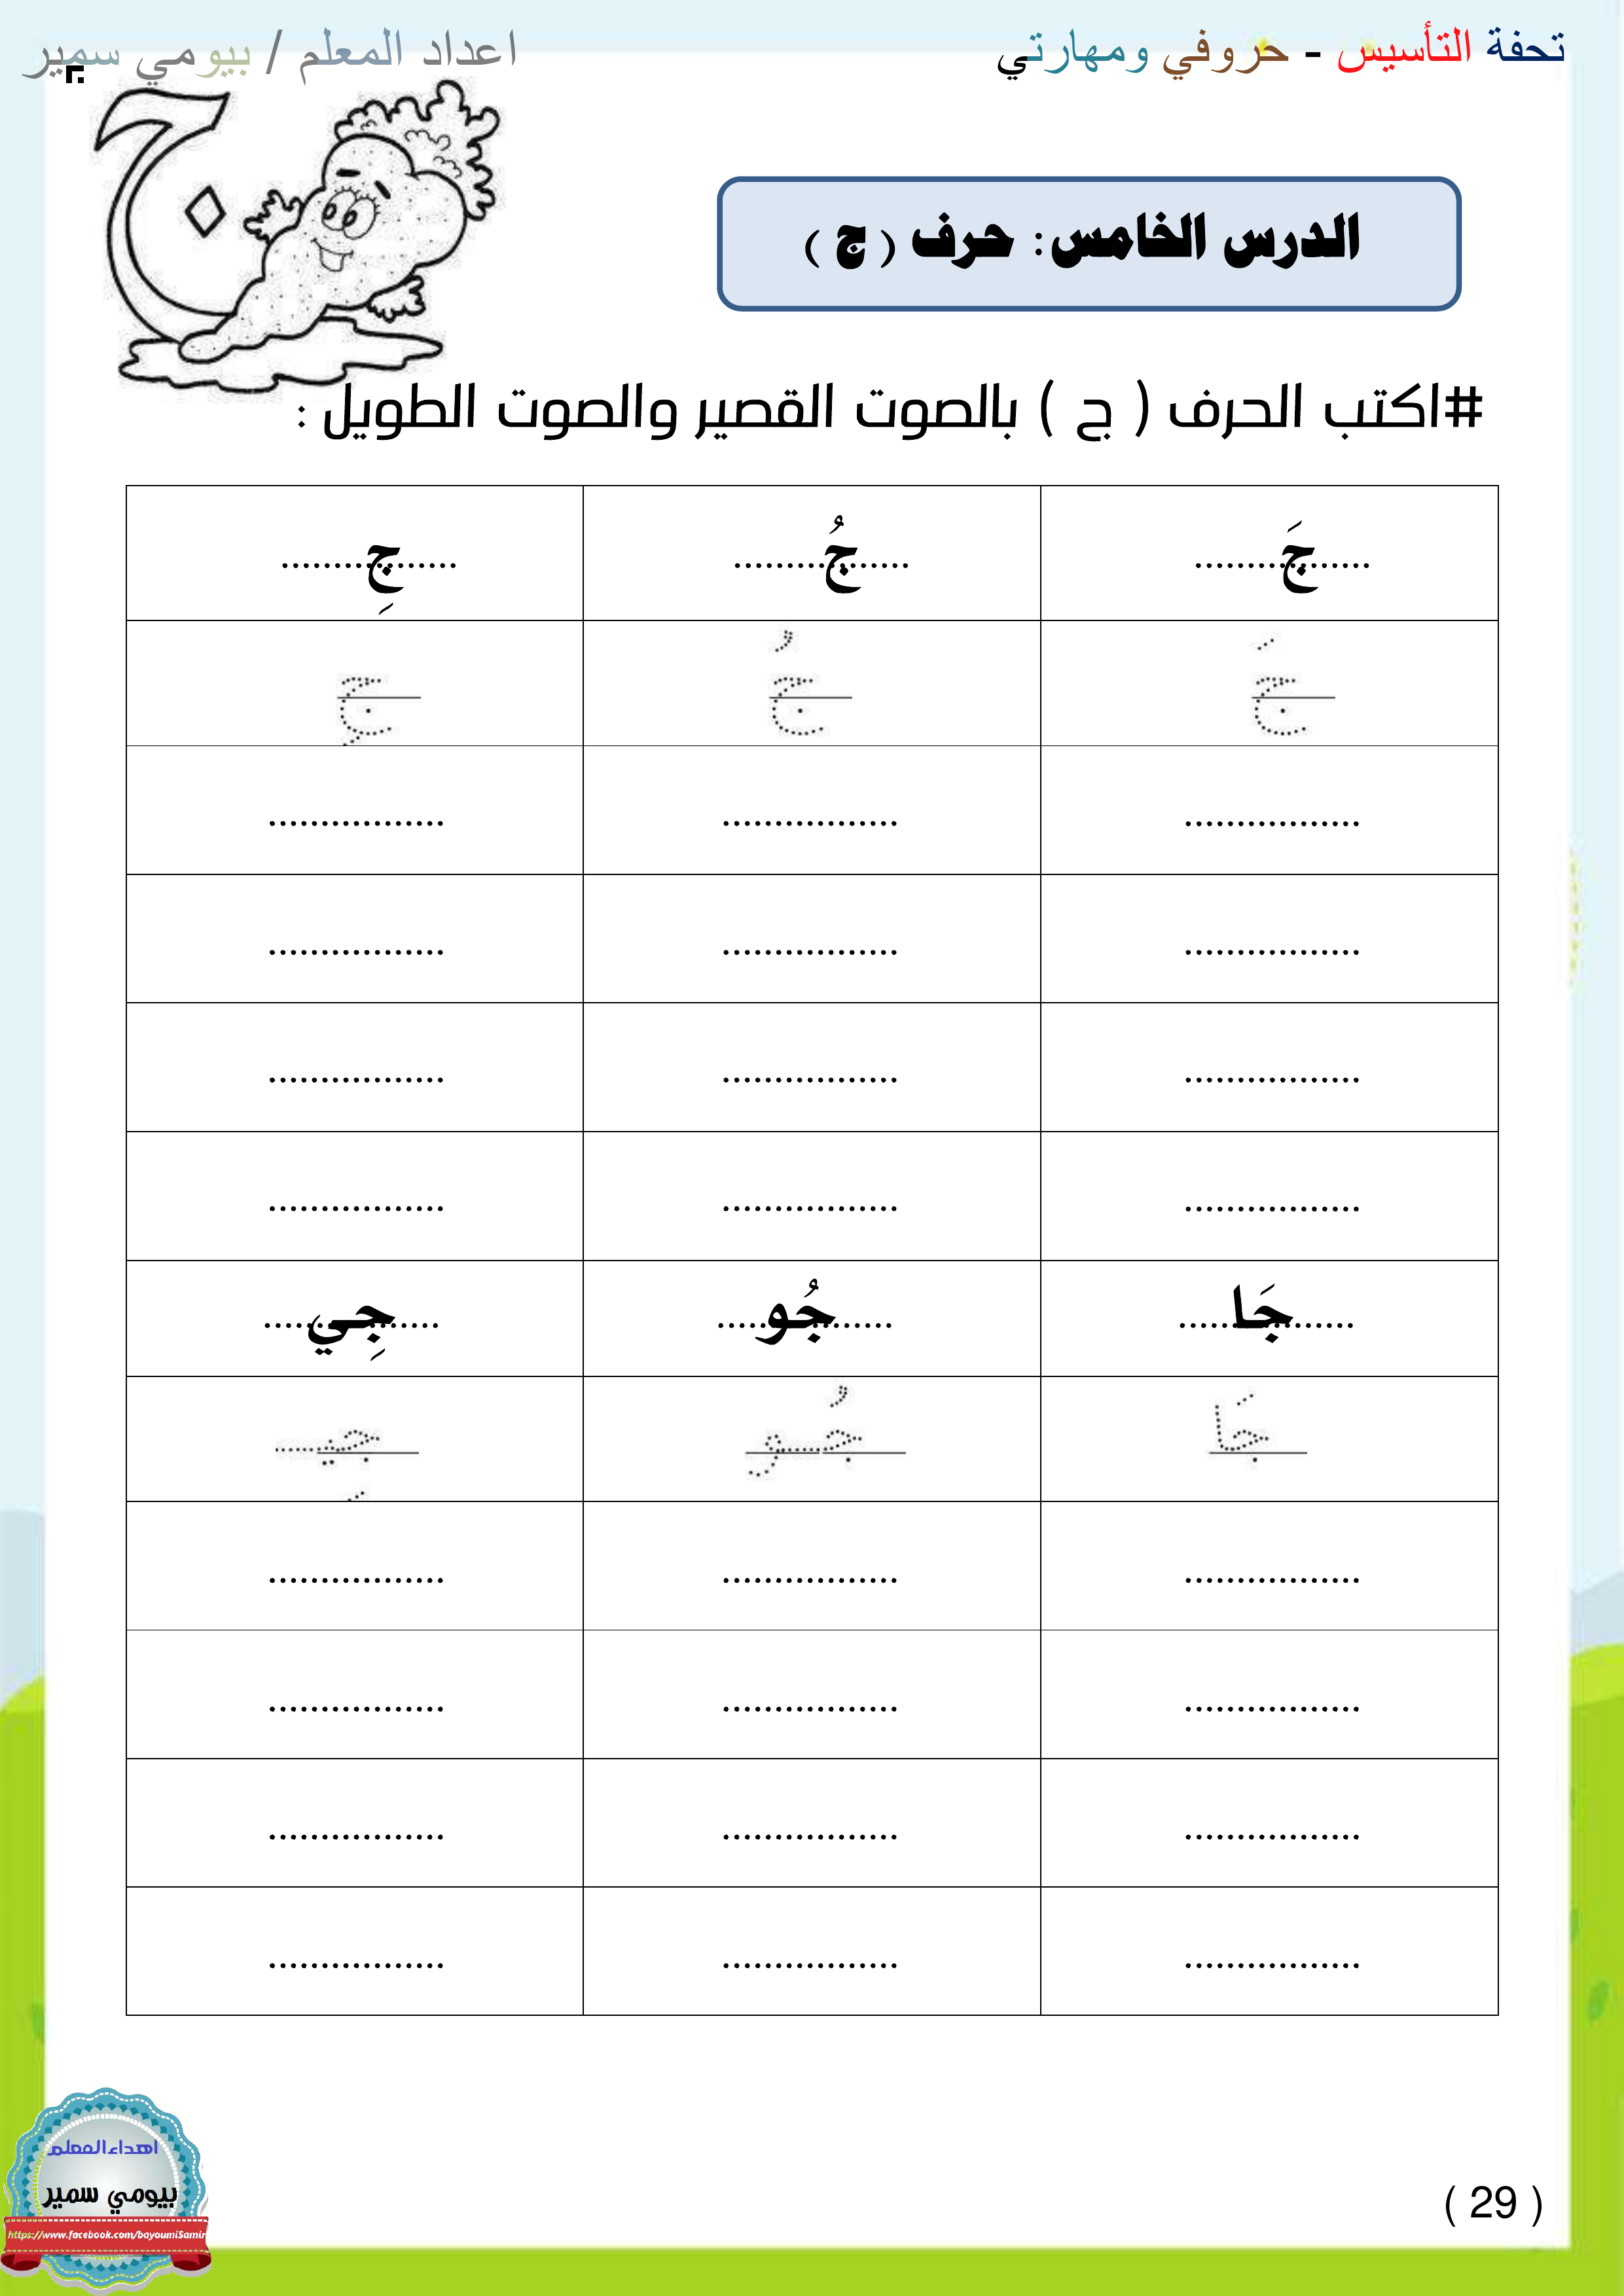 تحفة التأسيس - حروفي ومهارتي
اعداد المعلم / بيومي سمير
ج
الدرس الخامس: حرف ( ج )
#اكتب الحرف ( ج ) بالصوت القصير والصوت الطويل :
جَ................. جُ................. جِ.................
جَ جُ جِ
................. ................. .................
................. ................. .................
................. ................. .................
................. ................. .................
جَا................. جُو................. جِي.................
جَا جُو جِي
................. ................. .................
................. ................. .................
................. ................. .................
................. ................. .................
اهداء المعلم
بيومي سمير
https://www.facebook.com/bayoumiSamir
( 29 )